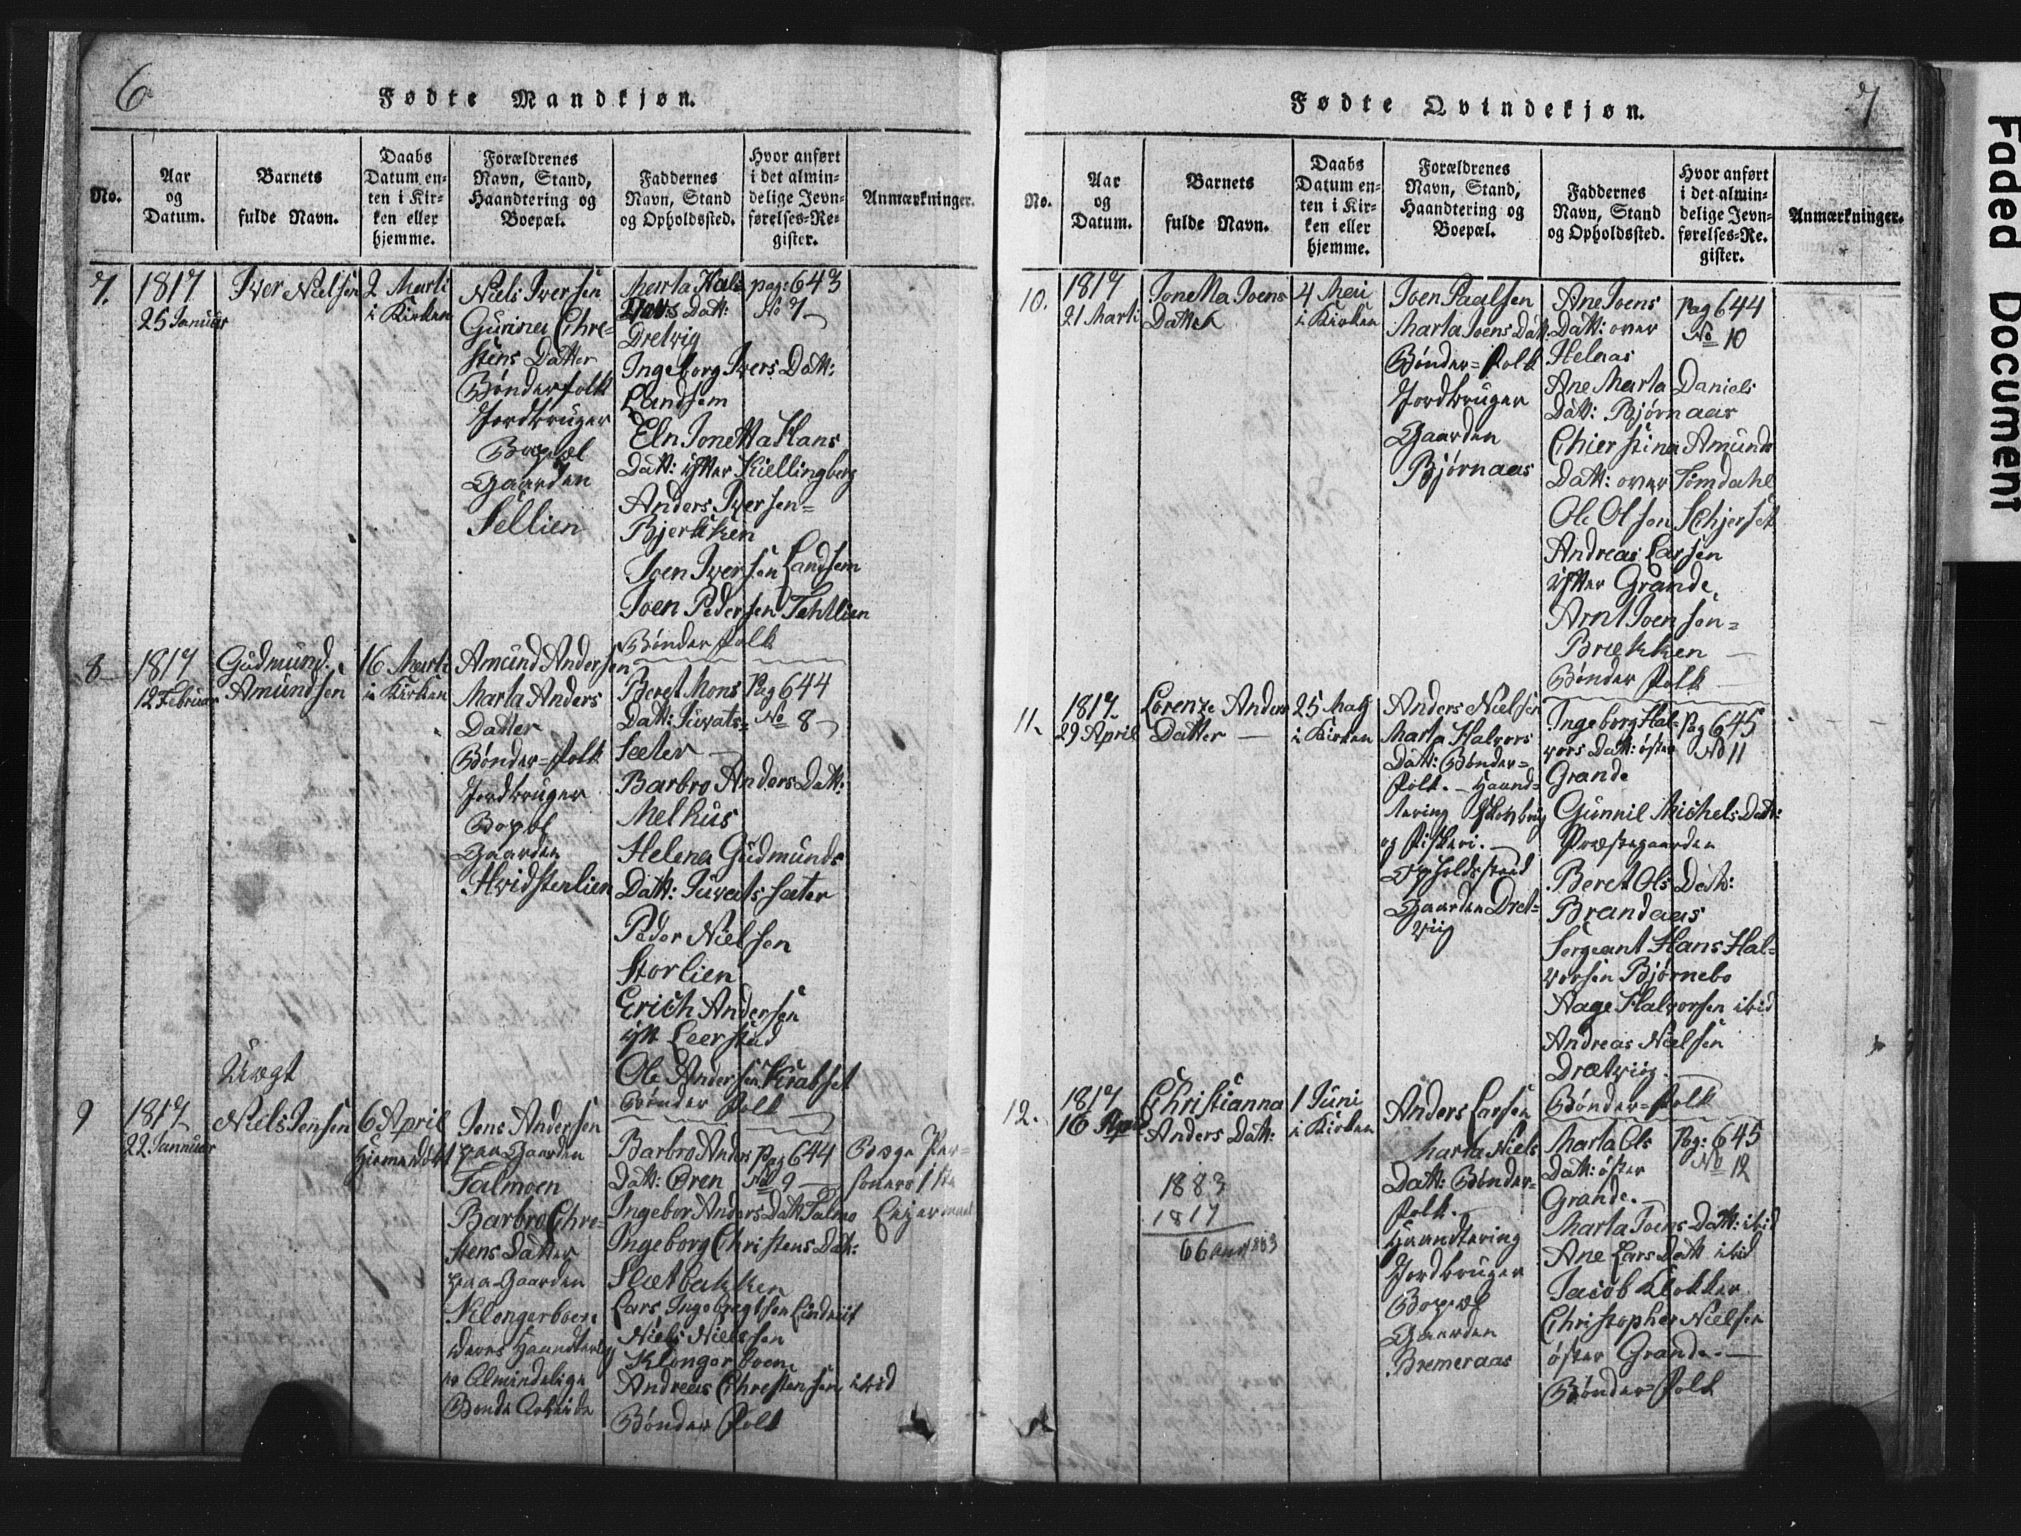 6
Fødte Mandkjøn.
No.
Aar
og
Datum.
Barnets
fulde Navn.
Daabs
Datum, en-
ten i Kir-
ken eller
hjemme.
Forældrenes
Navn, Stand,
Haandtering og
Boepæl.
Faddernes
Navn, Stand
og Opholdssted.
Hvor anført
i det almin-
delige Jevn-
førelses-Re-
gister.
Anmærkninger.
7.
1817
25 Januar
Iver Nielsen
2 Marti
i Kirken
Niels Iversen
Gunner Chre-
stens Datter
Bønderfolk
Jordbruger
Bopæl
Gaarden
Sellien
Marta Hals
Datt:
Dretvig
Ingeborg Ivers Datt:
Landsem
Eln Jonetta Hans
Datt: ytter Kiellingberg
Anders Iversen=
Bjerkken
Joen Iversen Landsem
Joen Pedersen Tehtlien
Bønder Folk
pag: 643
No 7
8
1817
12 Februar
Gudmund
Amundsen
16 Marti
i Kirken
Amund Andersen
Marta Anders
Datter
Bønder=Folk
Jordbruger
Bopæl
Gaarden
Hvidstenlien
Beret Mons
Datt: Juvats=
Sæter
Barbro Anders Datt:
Melhus
Helena Gudmunds
Datt: Juvats sæter
Peder Nielsen
Storlien
Erich Andersen
ytt Leerstad
Ole Andersen Krabset
Bønder Folk
Pag 644
No 8
9
1817
22 Januar
Uægt
Niels Jensen
6 April
Hiemmedøbt
Jens Andersen
paa Gaarden
Talmoen
Barbro Chre-
stens Datter
paa Gaarden
Klongerboen
deres Haandtering
er Almindelige
Bonde Arbeide
Barbro Anders
Datt: Ören
Ingebor Anders Datt Talmo
Ingeborg Christens Datt:
Slætbakken
Lars Ingebregtsen Lindriit
Niels Nielssen
Klongerboen
Andreas Christensen ibid
Bønder Folk
Pag 644
No 9
Begge Per-
soners 1ste
Leiermaal
7
Fødte Qvindekjøn.
No.
Aar
og
Datum.
Barnets
fulde Navn.
Daabs
Datum en-
ten i Kir-
ken eller
hjemme.
Forældrenes
Navn, Stand,
Haandtering og
Boepæl.
Faddernes
Navn, Stand
og Opholdssted.
Hvor anført
i det almin-
delige Jevn-
førelses-Re-
gister.
Anmærkninger.
10.
1817
21 Marti
Jonetta Joens
Datter
4 Mai
i Kirken
Joen Paalsen
Marta Joens Datt:
Bønder=Folk
Jordbruger
Gaarden
Bjørnaas
Ane Joens
Datt: over
Helnas
Ane Marta Daniels
Datt: Bjørnaas
Chierstina Amunds
Datt: over Tømdahl
Ole Olsen Schjerset
Andreas Larsen
ytter Grande
Arnt Joensen=
Brækken
Bønder Folk
Pag 644
No 10
11.
1817
29 April
Lorenze Anders
Datter
25 Maij
i Kirken
Anders Nielsen
Marta Halvors
Datt: Bønder=
Folk. Haand-
tering
og Fiskeri.
Opholdssted
Gaarden Dret-
viig
Ingeborg Hal-
vors Datt: øster
Grande
Gunnil Michels Datt:
Præstegaarden
Beret Ols Datt:
Brandaas
Sergeant Hans Hal-
vorsen Bjørnebo
Aage Halvorsen ibid
Andreas Nielsen
Drætviig
Bønder=Folk
Pag 645
No 11
12.
1817
16 April
Christianna
Anders Datt:
1883
1817
66
1 Juni
i Kirken
Anders Larsen
Marta Niels
Datt: Bønder=
Folk.
Haandtering
Jordbruger
Bopæl
Gaarden
Bremeraas
Marta Ols
Datt: øster
Grande.
Marta Joens Datt: ibid
Ane Lars Datt ibid
Jacob Klokker
Christopher Nielsen
øster Grande.
Bønder=Folk
Pag: 645
No 12
Faded Document